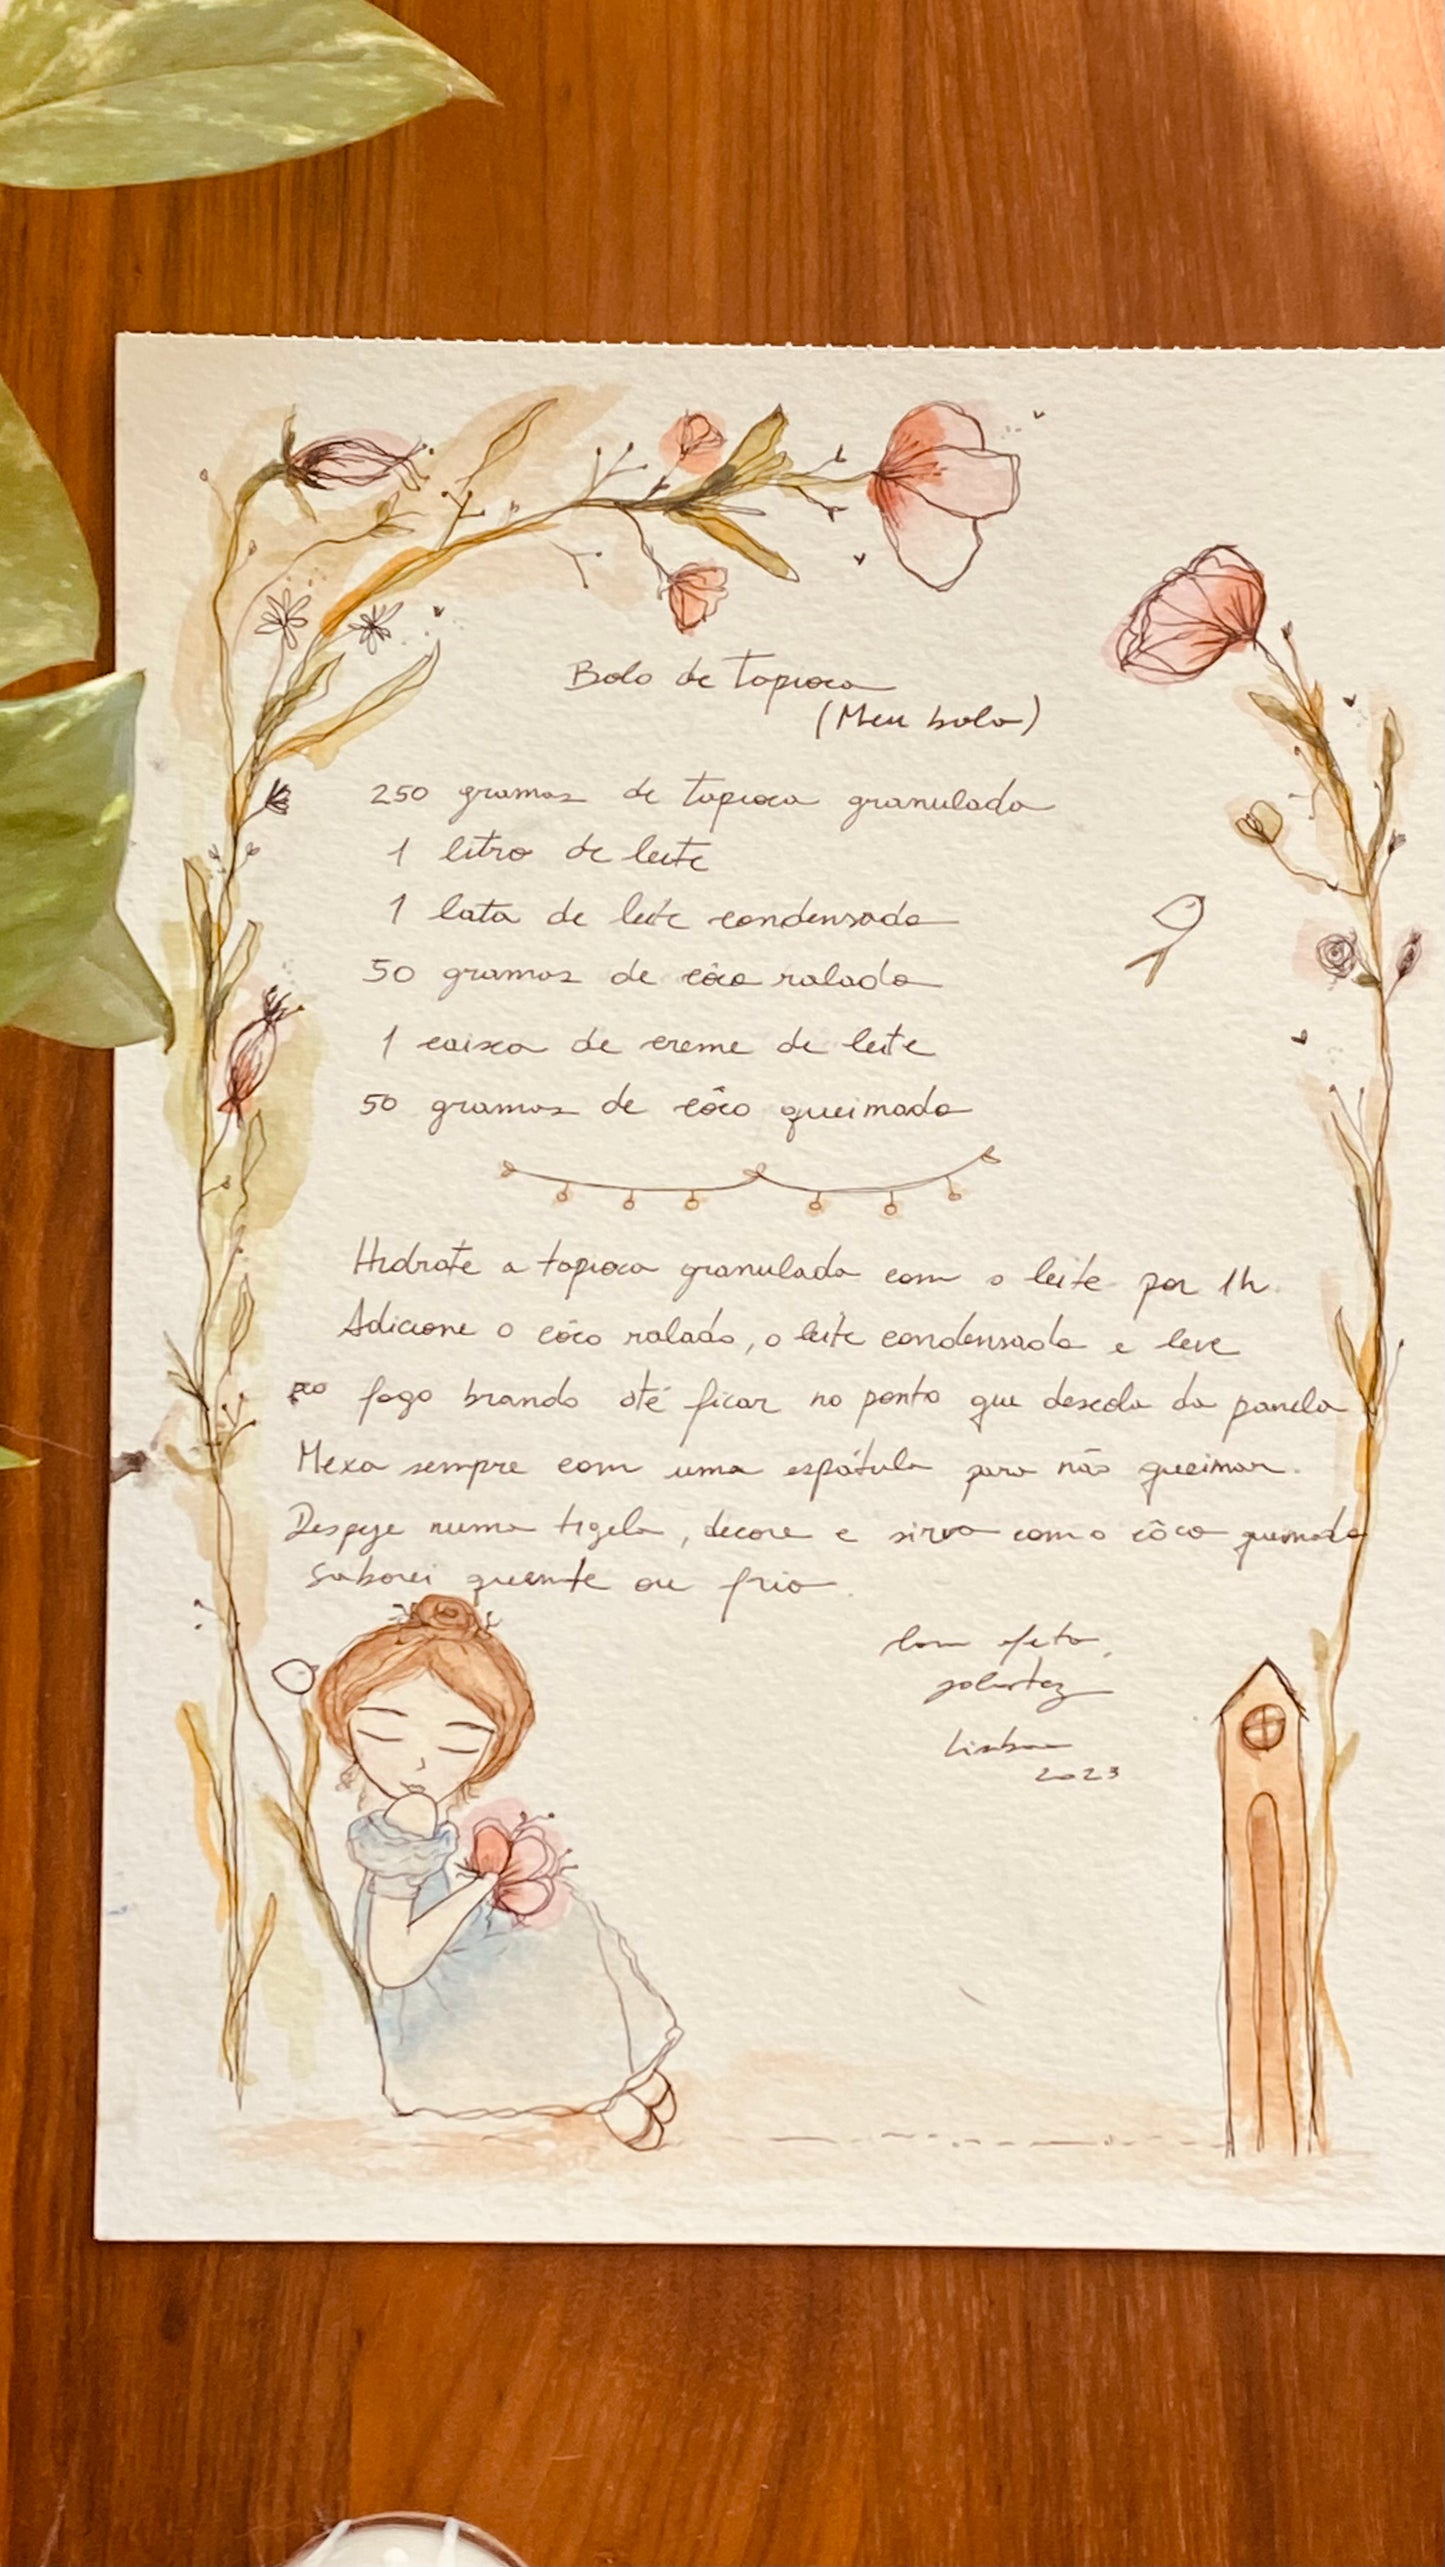 Bolo de tapioca
(Meu bolo)
250 gramas de tapioca granulada
1 litro de leite
1 lata de leite condensado
50 gramas de côco ralado
1 caixa de creme de leite
50 gramas de côco queimado
Hidrate a tapioca granulada com o leite por 1h.
Adicione o côco ralado, o leite condensado e leve
ao fogo brando até ficar no ponto que descola da panela
Mexa sempre com uma espátula para não queimar.
Despeje numa tigela, decore e sirva com o côco queimado
Saborei quente ou frio.
Com afeto,
Lisboa
2023